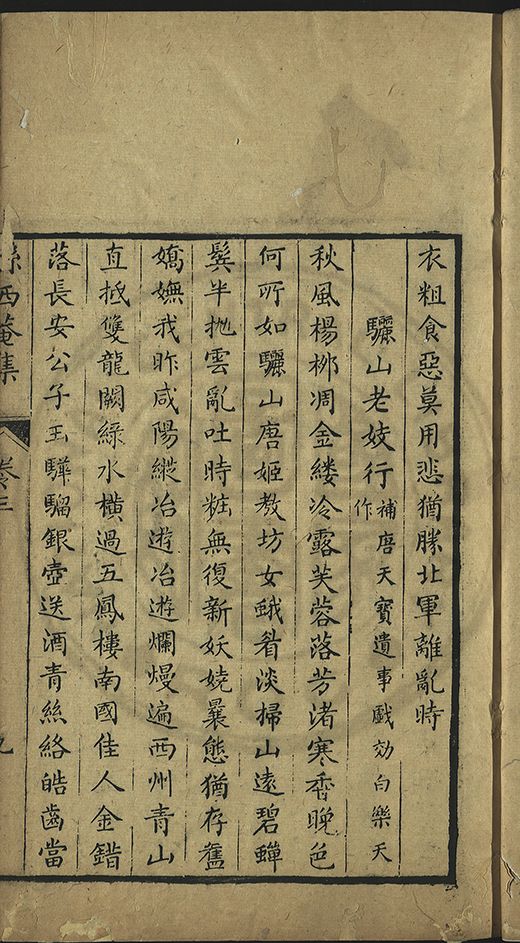 衣粗食惡莫用悲猶勝北軍離亂時
驪山老妓行補唐天寶遺事戲効白樂天作
秋風楊栁凋金縷冷露芙蓉落芳渚寒香晚色
何所如驪山唐姬教坊女蛾眉淡掃山遠碧蟬
鬂半抛雲亂吐時粧無復新妖嬈曩態猶存舊
嬌嫵我昨咸陽縱冶遊冶遊爛熳遍西州青山
直抵雙龍闕綠水橫過五鳳樓南國佳人金錯
落長安公子玉驊騮銀壺送酒青絲絡皓齒當
西菴集
卷三
九